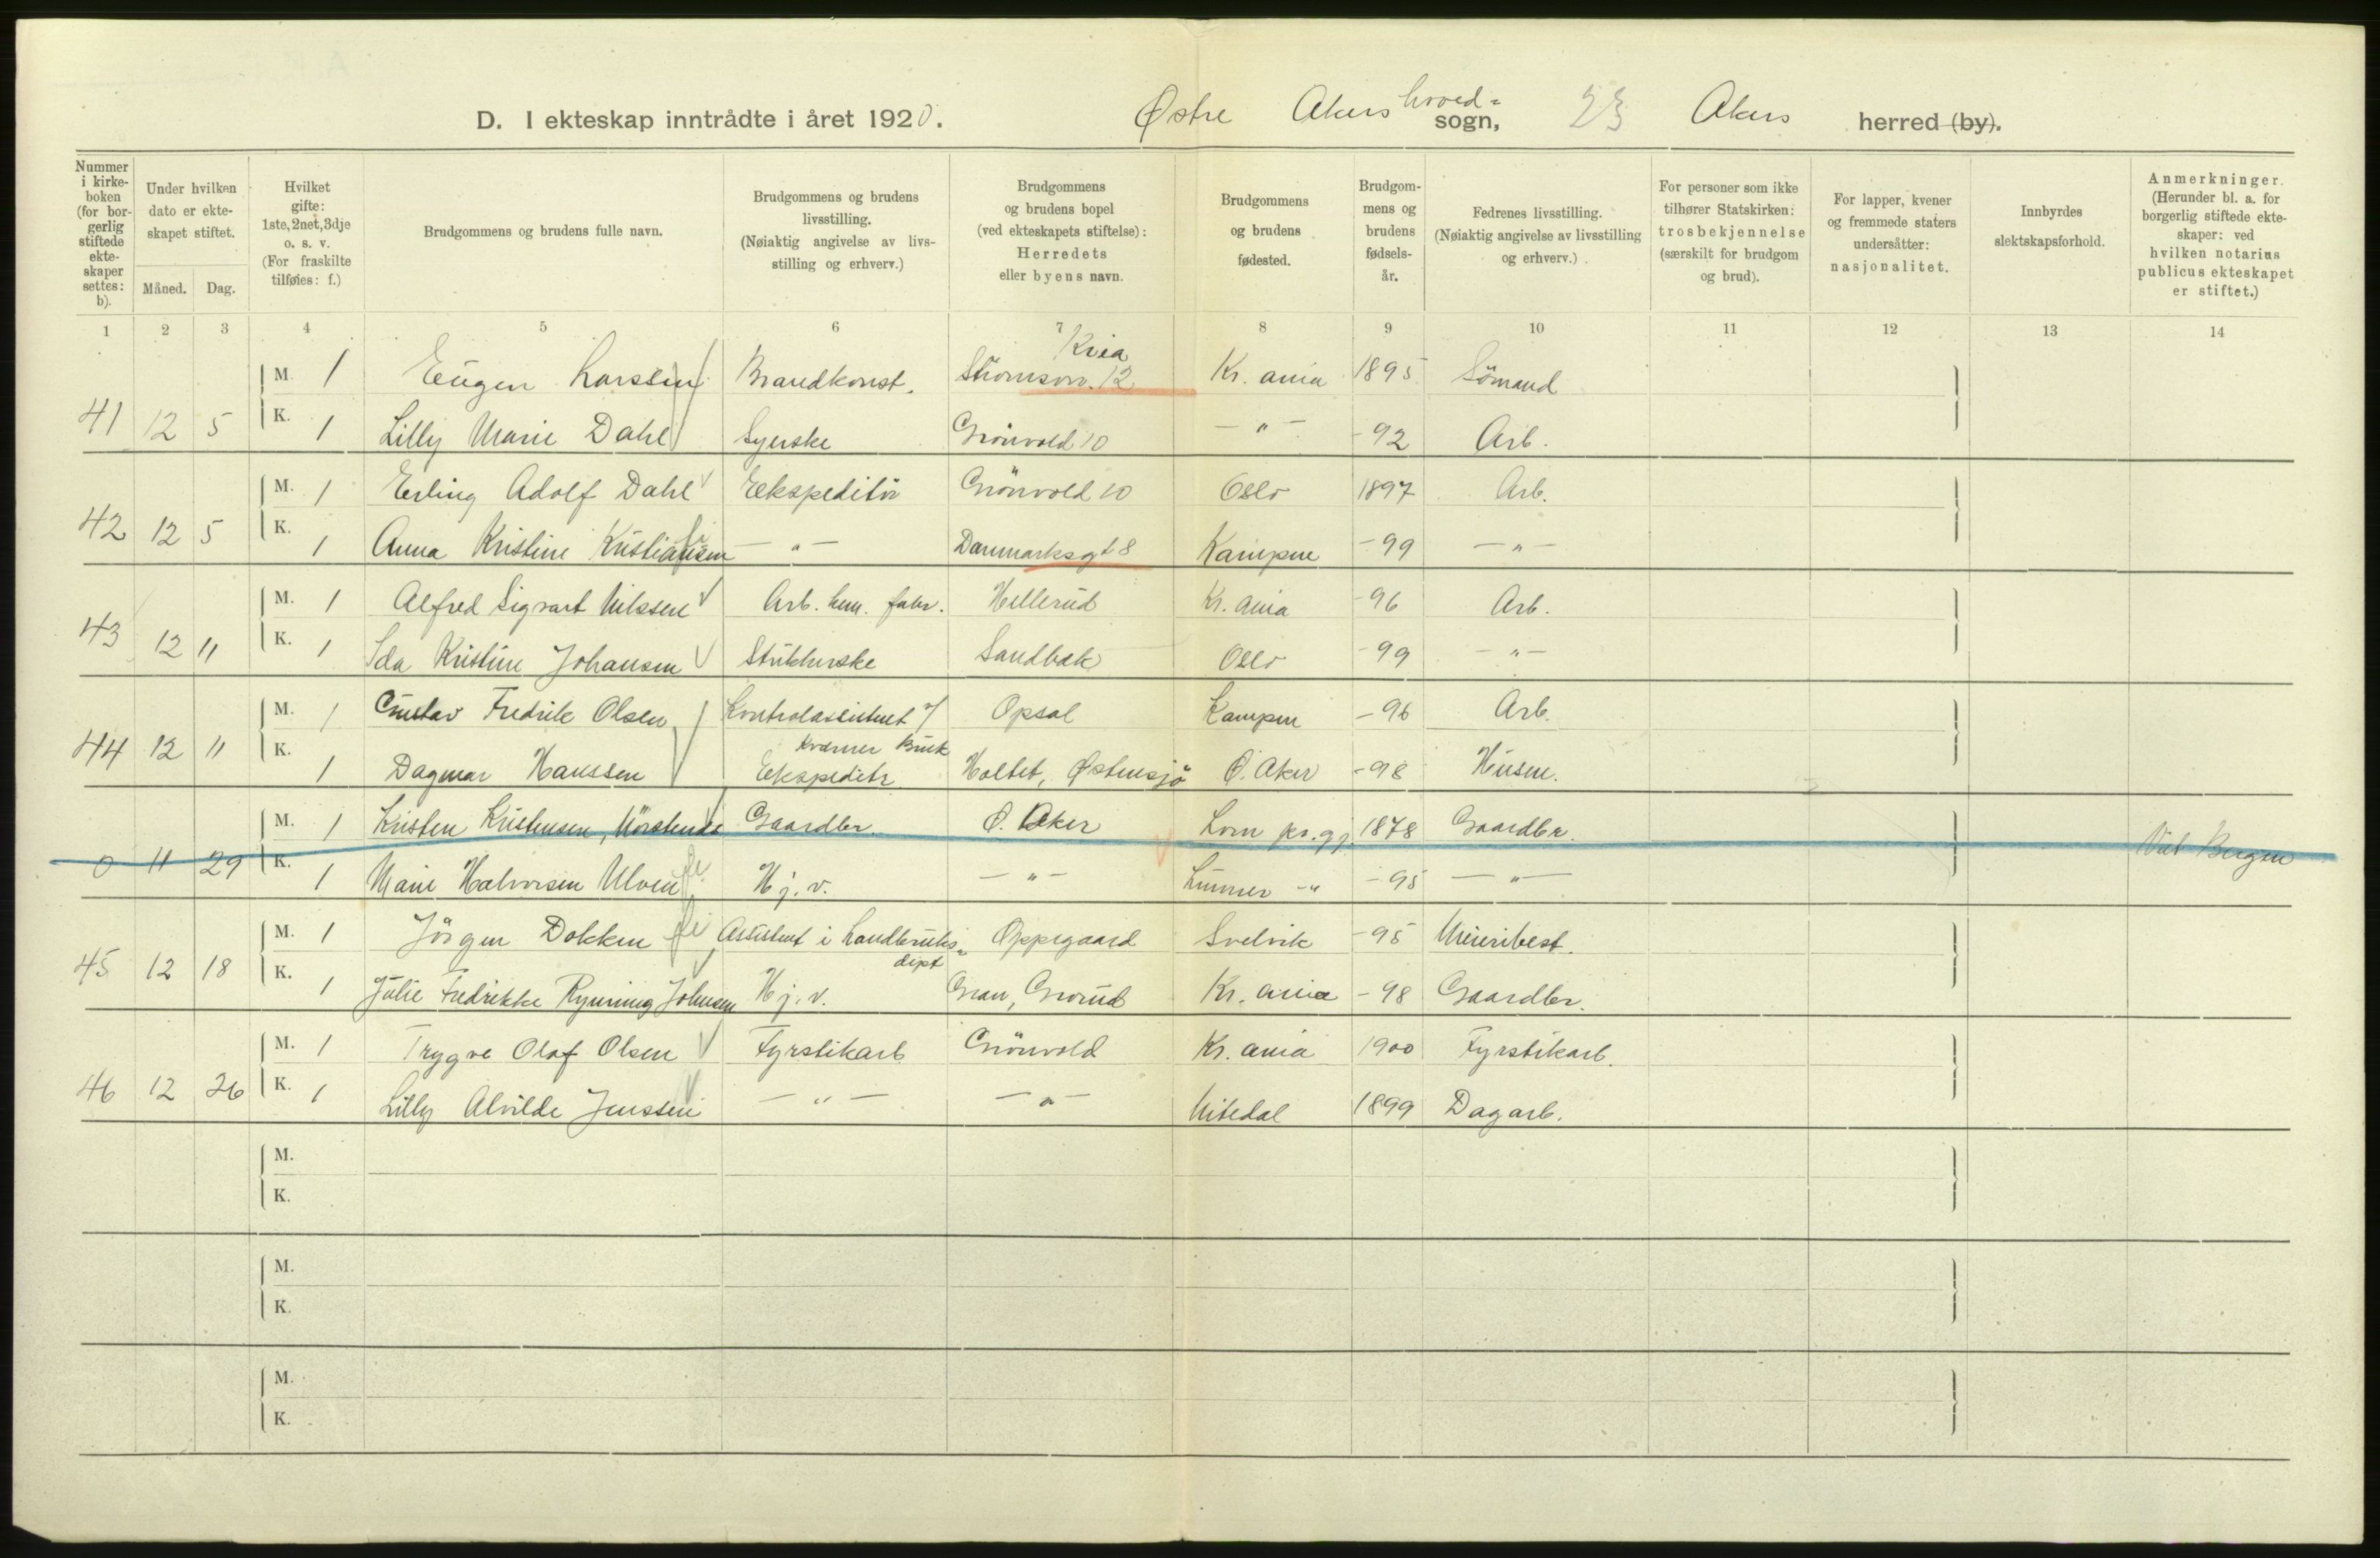 D. I ekteskap inntrådte i året 1920. Østre Akers hoved= sogn, 23 Akers herred (by).
Nummer i kirke-boken (for bor-gerlig stiftede ekte-skaper settes: b).
Under hvilken dato er ekte-skapet stiftet.
Måned. Dag.
Hvilket gifte: 1ste, 2net, 3dje o. s. v. (For fraskilte tilføies: f.)
Brudgommens og brudens fulle navn.
Brudgommens og brudens livsstilling. (Nøiaktig angivelse av livs-stilling og erhverv.)
Brudgommens og brudens bopel (ved ekteskapets stiftelse): Herredets eller byens navn.
Brudgommens og brudens fødested.
Brudgom-mens og brudens fødsels-år.
Fedrenes livsstilling. (Nøiaktig angivelse av livsstilling og erhverv.)
For personer som ikke tilhører Statskirken: trosbekjennelse (særskilt for brudgom og brud).
For lapper, kvener og fremmede staters undersåtter: nasjonalitet.
Innbyrdes slektskapsforhold.
Anmerkninger. (Herunder bl. a. for borgerlig stiftede ekte-skaper: ved hvilken notarius publicus ekteskapet er stiftet.)
1 2 3 4 5 6 7 8 9 10 11 12 13 14
M. 1 Eugen Larssen Brandkonst. Kria Thomson. 12 Kr. ania 1895 Sömand
41 12 5 K. 1 Lilly Marie Dahl Syerske Grönvold 10 - " - -92 Arb.
M. 1 Erling Adolf Dahl Ekspeditör Grönvold 10 Oslo 1897 Arb.
42 12 5 K. 1 Anna Kristine Kristiansen - " - Danmarksgt 8 Kampen -99 - " -
M. 1 Alfred Sigvart Nilssen Arb. kem. fabr. Hellerud Kr. ania -96 Arb.
43 12 11 K. 1 Ida Kristine Johansen Strikkerske Sandbak Oslo -99 - " -
M. 1 Gustav Fredrik Olsen Kontrolassistent / Kværner Bruk Opsal Kampen -96 Arb.
44 12 11 K. 1 Dagmar Hanssen Ekspeditr. Holtet, Østensjö Ö. Aker -98 Husm.
M. 1 Kristen Kristensen, Gaardbr. Ö. Aker Lom pr.gj. 1878 Gaardbr.
0 11 29 K. 1 Marie Halvorsen Ulven Hj. v. - " - Lunner - " -95 - " - Bergen
M. 1 Jörgen Dokken Assistent i Landbruks= dept Oppegaard Svelvik -95 Meieribest.
45 12 18 K. 1 Julie Fredrikke Rynning Johnsen Hj. v. Gran, Grorud Kr. ania -98 Gaardbr.
M. 1 Trygve Olaf Olsen Fyrstikarb Grönvold Kr. ania 1900 Fyrstikarb.
46 12 26 K. 1 Lilly Alvilde Jenssen - " - - " - Nitedal 1899 Dagarb.
M.
K.
M.
K.
M.
K.